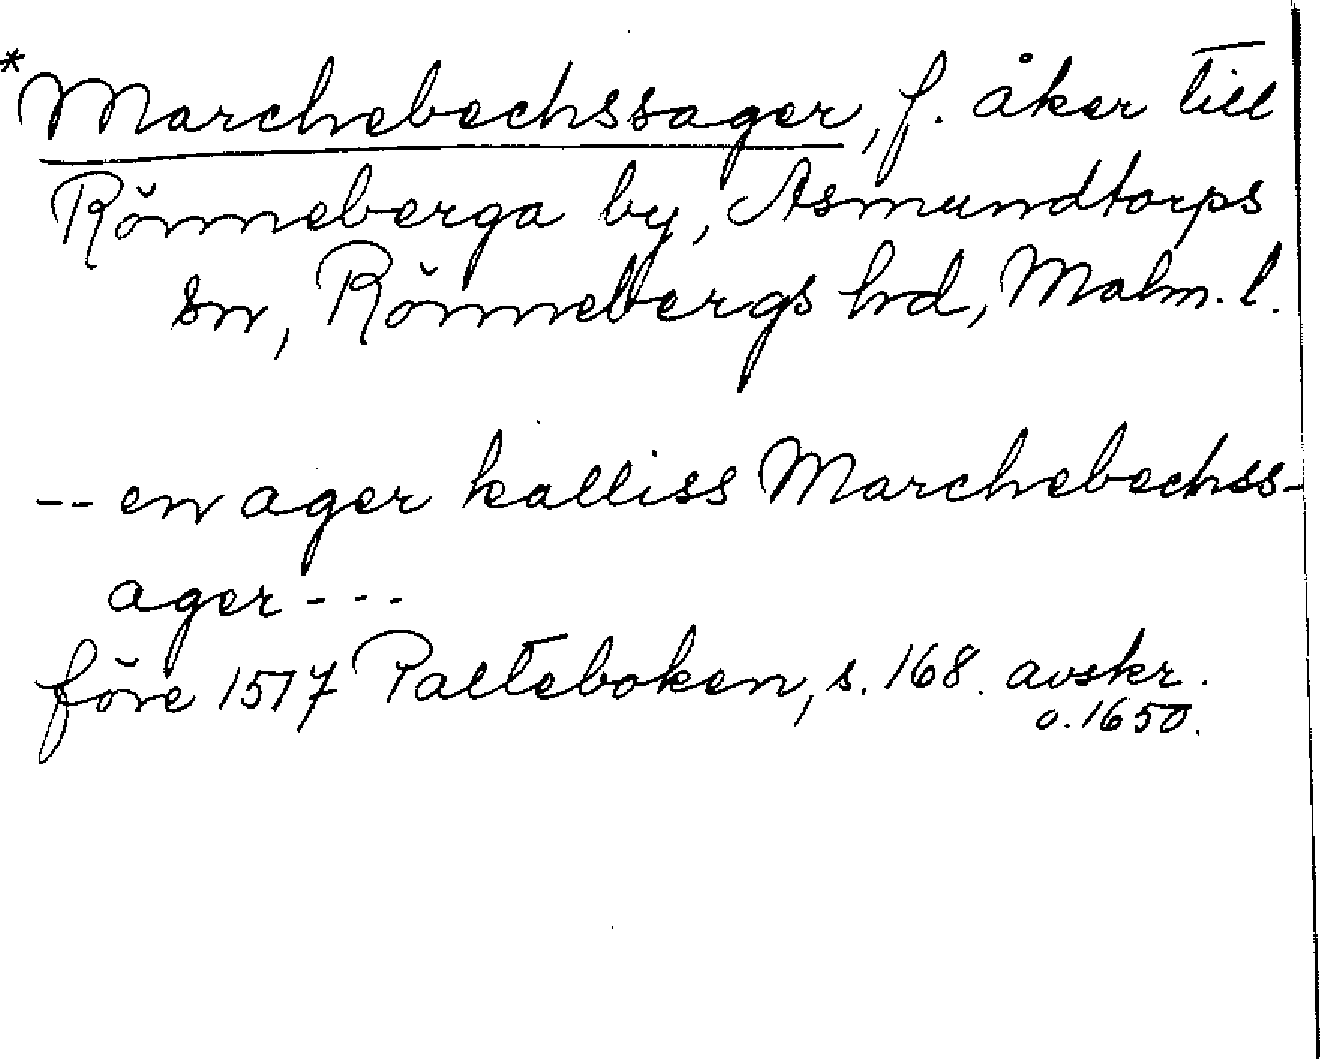 *Marchebechssager, f. åker till
Rönneberga by, Asmundtorps
sn, Rönnebergs hd, Malm. l.
-- en ager kalliss Marchebechss-
ager - - -
före 1517 Palteboken, s. 168. avskr.
o. 1650.